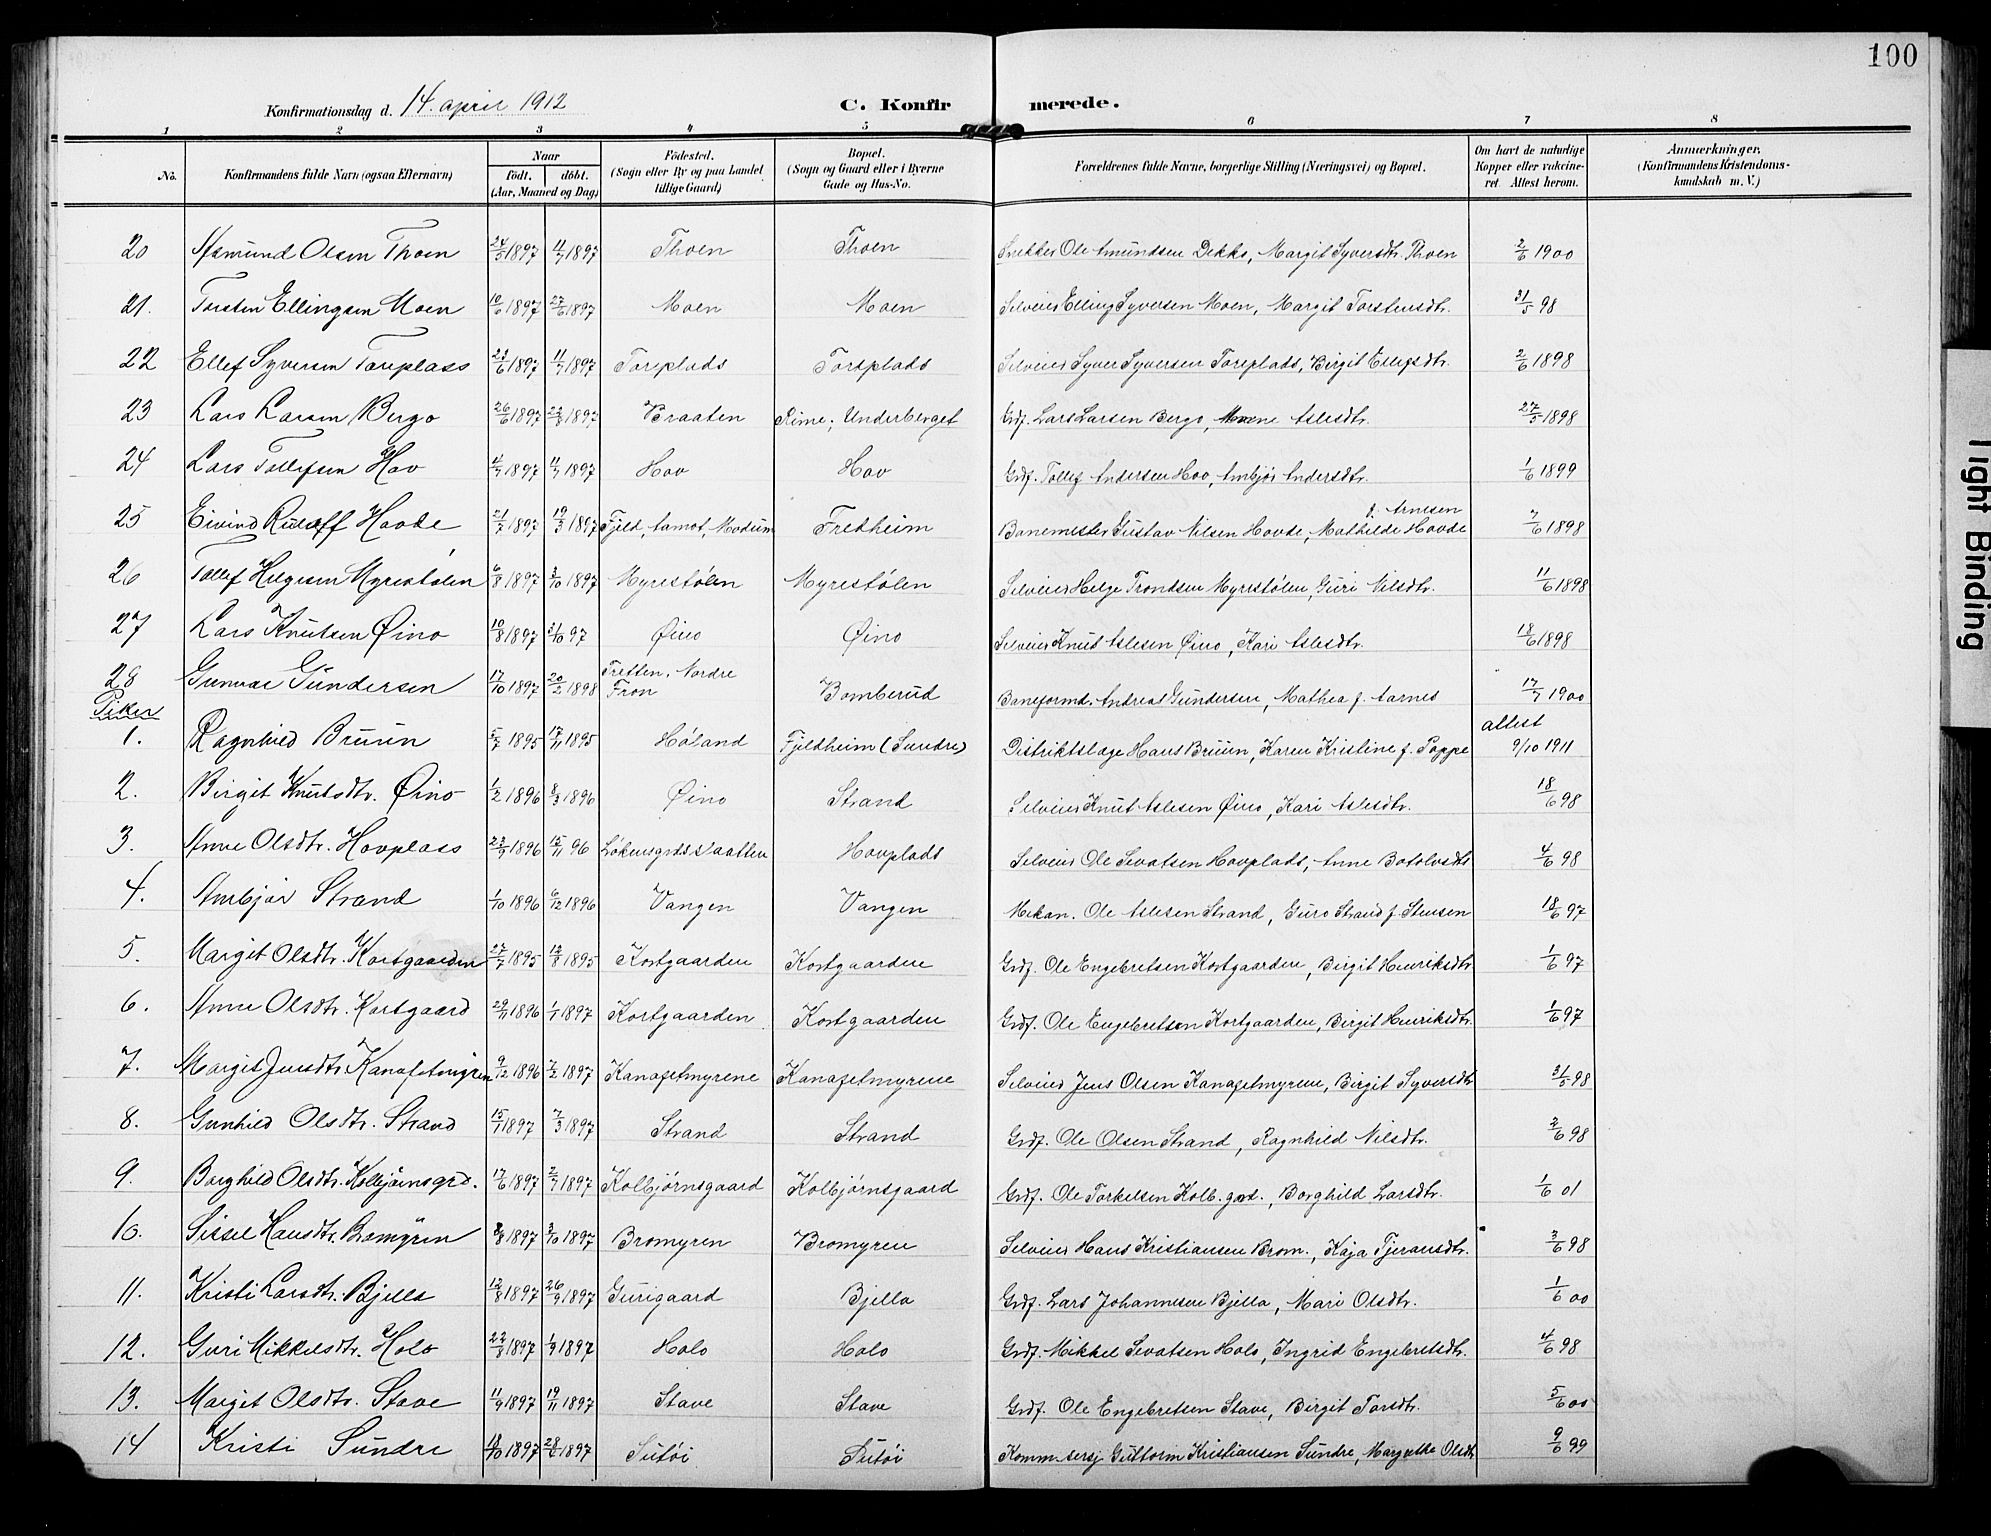 100
Konfirmationsdag d. 14. april 1912
C. Konfirmerede.
1 2 3 4 5 6 7 8
No. | Konfirmandens fulde Navn (ogsaa Efternavn) | Naar födt. döbt. (Aar, Maaned og Dag) | Födested. (Sogn eller By og paa Landet tillige Gaard) | Bopæl. (Sogn og Gaard eller i Byerne Gade og Hus-No. | Forældrenes fulde Navne, borgerlige Stilling (Næringsvei) og Bopæl. | Om havt de naturlige Kopper eller vakcineret. Attest herom. | Anmerkninger. (Konfirmandens Kristendomskundskab m. V.)
20 Asmund Olsen Thoen 24/5 1897 11/7 1897 Thoen Thoen Snekker Ole Amundsen Dekko, Margit Syversdtr. Thoen 2/6 1900
21. Torsten Ellingsen Moen 10/6 1897 27/6 1897 Moen Moen Selveier Elling Syversen Moen, Margit Torstensdtr. 31/5 98
22 Ellef Syversen Torsplass 23/6 1897 11/7 1897 Torsplads Torsplads Selveier Syver Syversen Torsplads, Birgit Ellefsdtr. 2/6 1898
23 Lars Larsen Bergo 26/6 1897 22/8 1897 Braaten Rime, Underberget Grdf. Lars Larsen Bergo, Aslesdtr. 27/5 1898
24 Lars Tollefsen Hov 4/7 1897 11/7 1897 Hov Hov Grdf. Tollef Andersen Hov, Ambjør Andersdtr. 1/6 1899
25 Eivind Rudolf Hovde 21/7 1897 19/9 1897 Fjeld, Aamot, Modum Fredheim Banemester Gustav Nilsen Hovde, Mathilde Hovde f. Arnesen 7/6 1898
26 Tollef Helgesen Myrestølen 6/8 1897 3/10 1897 Myrestølen Myrestølen Selveier Helge Trondsen Myrestølen, Guri Nilsdtr. 11/6 1898
27 Lars Knutsen Øino 10/8 1897 3/10 97 Øino Øino Selveier Knut Aslesen Øino, Kari Aslesdtr. 18/6 1898
28 Gunvar Gundersen 17/10 1897 20/2 1898 Tretten, Nordre Fron Bomberud Baneformd. Andreas Gundersen, Mathea f. Aarnes 17/7 1900
Piker
1. Ragnhild Bruun 5/7 1895 17/11 1895 Høland Fjeldheim (Sundre) Distriktslæge Hans Bruun, Karen Kristine f. Poppe attest 9/10 1911
2. Birgit Knutsdtr. Øino 1/2 1896 8/3 1896 Øino Strand Selveier Knut Aslesen Øino, Kari Aslesdtr. 18/6 98
3. Anne Olsdtr. Hovplass 23/9 1896 15/11 96 Hovplads Selveier Ole Sevatsen Hovplads, Anne Botolvsdtr 4/6 98
4. Ambjør Strand 1/10 1896 6/12 1896 Vangen Vangen Mekan. Ole Aslesen Strand, Guro Strand f. Stensen 18/6 97
5. Margit Olsdtr. Kortgaarden 27/7 1895 18/8 1895 Kortgaarden Kortgaarden Grdf. Ole Engebretsen Kortgaarden, Birgit Henriksdtr 1/6 97
6. Anne Olsdtr. Kortgaard 29/11 1896 1/1 1897 Kortgaarden Kortgaarden Grdf. Ole Engebretsen Kortgaarden, Birgit Henriksdtr. 1/6 97
7. Margit Jensdtr. 9/12 1896 7/2 1897 Kanafetmyrene Kanafetmyrene Selveier Jens Olsen Kanafetmyrene, Birgit Syversdtr 31/5 98
8. Gunhild Olsdtr. Strand 15/1 1897 7/3 1897 Strand Strand Grdf. Ole Olsen Strand, Ragnhild Nilsdtr. 2/6 98
9. Borghild Olsdtr. Kolbjørnsgrd. 17/6 1897 2/7 1897 Kolbjørnsgaard Kolbjørnsgaard Grdf. Ole Torkelsen Kolb. grd., Borghild Larsdtr. 1/6 01
10. Sissel Hansdtr. Bromyren 1897 3/10 1897 Bromyren Bromyren Selveier Hans Kristiansen Brom., Kaja Tjeransdtr. 3/6 98
11. Kristi Larsdtr. Bjella 12/8 1897 26/9 1897 Gurigaard Bjella Grdf. Lars Johannesen Bjella, Mari Olsdtr. 1/6 00
12. Guri Mikkelsdtr. Holo 22/8 1897 1897 Holo Holo Grdf. Mikkel Sevatsen Holo, Ingrid Engebretsdtr. 4/6 98
13. Margit Olsdtr. Stave 11/9 1897 19/11 1897 Stave Stave Grdf. Ole Engebretsen Stave, Birgit Torsdtr. 5/6 00
14 Kristi Sundre 18/10 1897 1897 Sutøi Sutøi Guttorm Kristiansen Sundre, Margethe Olsdtr 9/6 99
Tight Binding